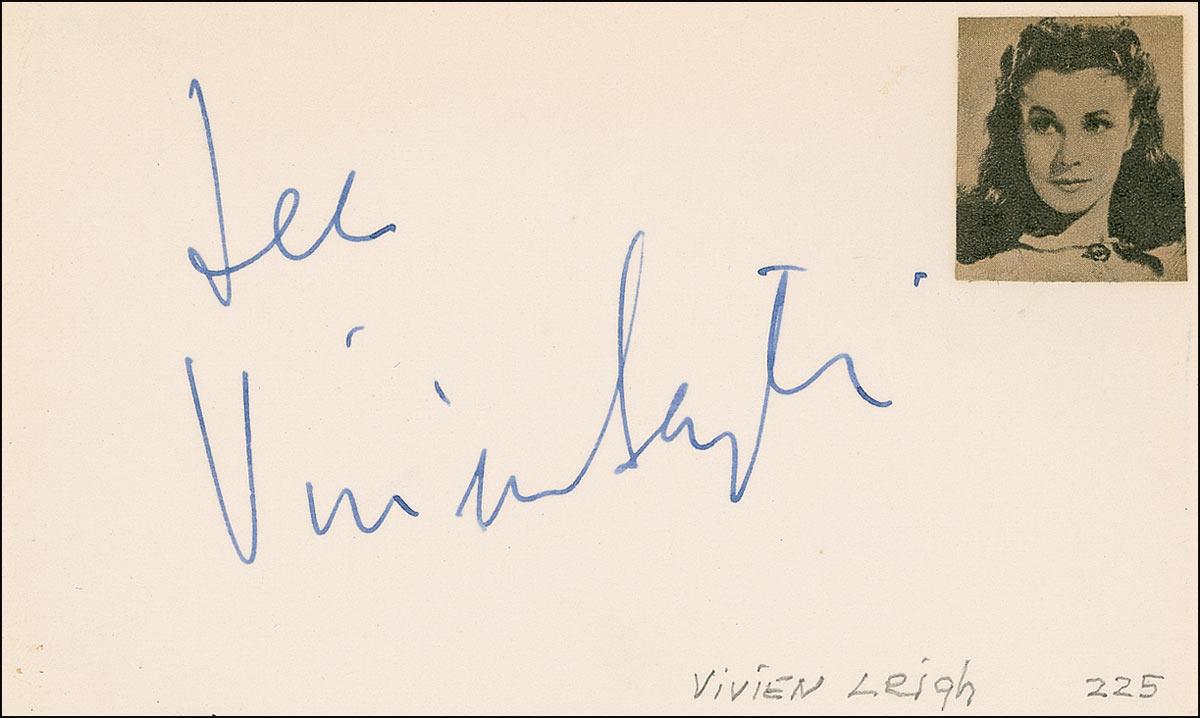 Vivien Leigh
VIVIEN Leigh 225